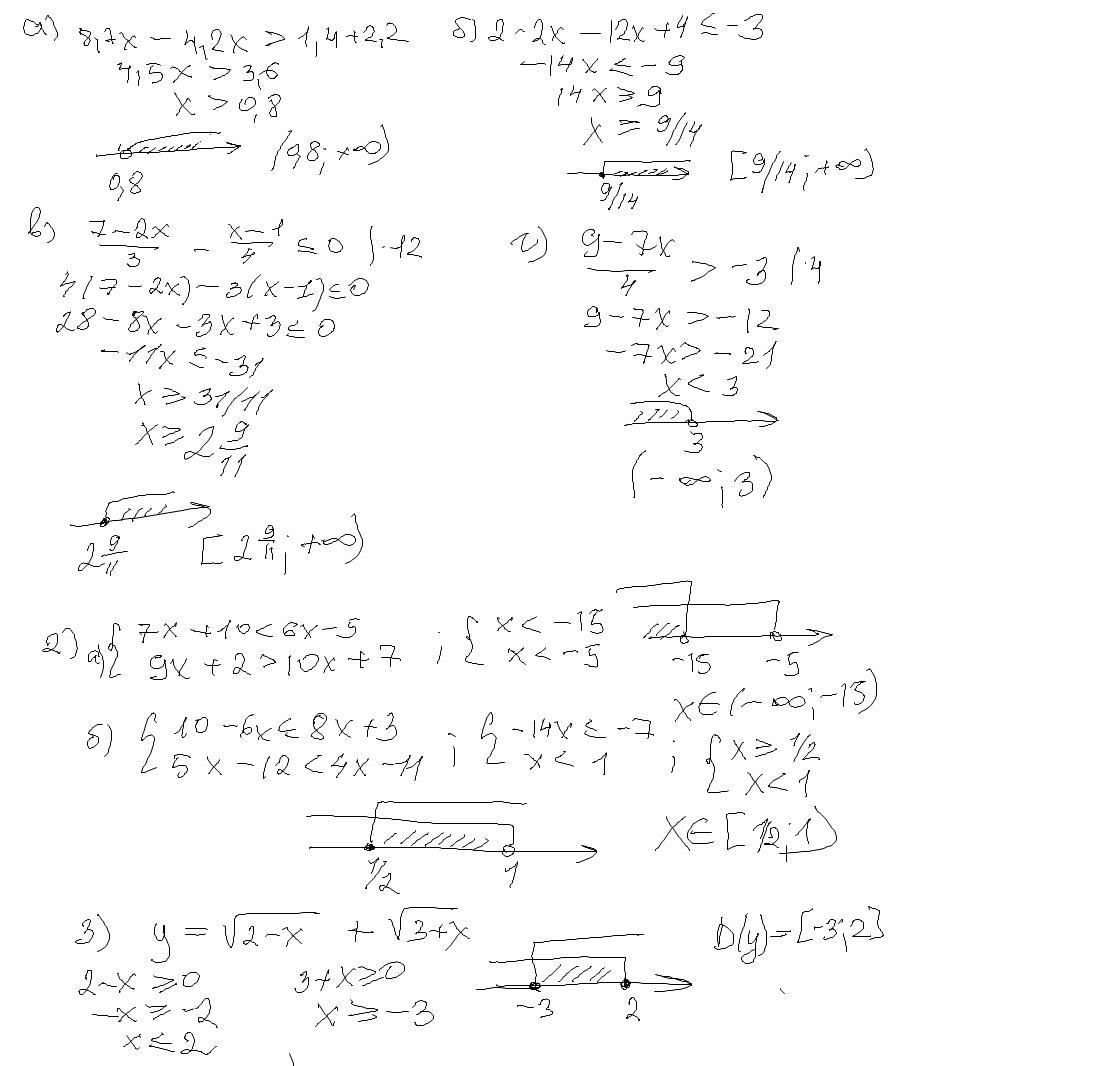 а) 8,7x - 4,2x > 1,4+2,2
4,5x > 3,6
x > 0,8
0,8
(0,8; +∞)
б) 2 - 2x - 12x + 4 ≤ -3
-14x ≤ -9
14x ≥ 9
x ≥ 9/14
9/14
[9/14; +∞)
в) (7-2x)/3 - (x-1)/4 ≤ 0 | ·12
4(7-2x) - 3(x-1) ≤ 0
28 - 8x - 3x + 3 ≤ 0
-11x ≤ -31
x ≥ 31/11
x ≥ 2 9/11
2 9/11
[2 9/11; +∞)
г) (9-7x)/4 > -3 | ·4
9-7x > -12
-7x > -21
x < 3
3
(-∞; 3)
2) а) { 7x + 10 < 6x - 5 ; { x < -15
9x + 2 > 10x + 7 ; x < -5
-15 -5
x∈(-∞; -15)
б) { 10 - 6x ≤ 8x + 3 ; { -14x ≤ -7 ; { x ≥ 1/2
5x - 12 < 4x - 11 ; x < 1 ; x < 1
1/2 1
x∈[1/2; 1)
3) y = √(2-x) + √(3+x)
2-x ≥ 0
-x ≥ -2
x ≤ 2
3+x ≥ 0
x ≥ -3
-3 2
D(y)=[-3; 2]